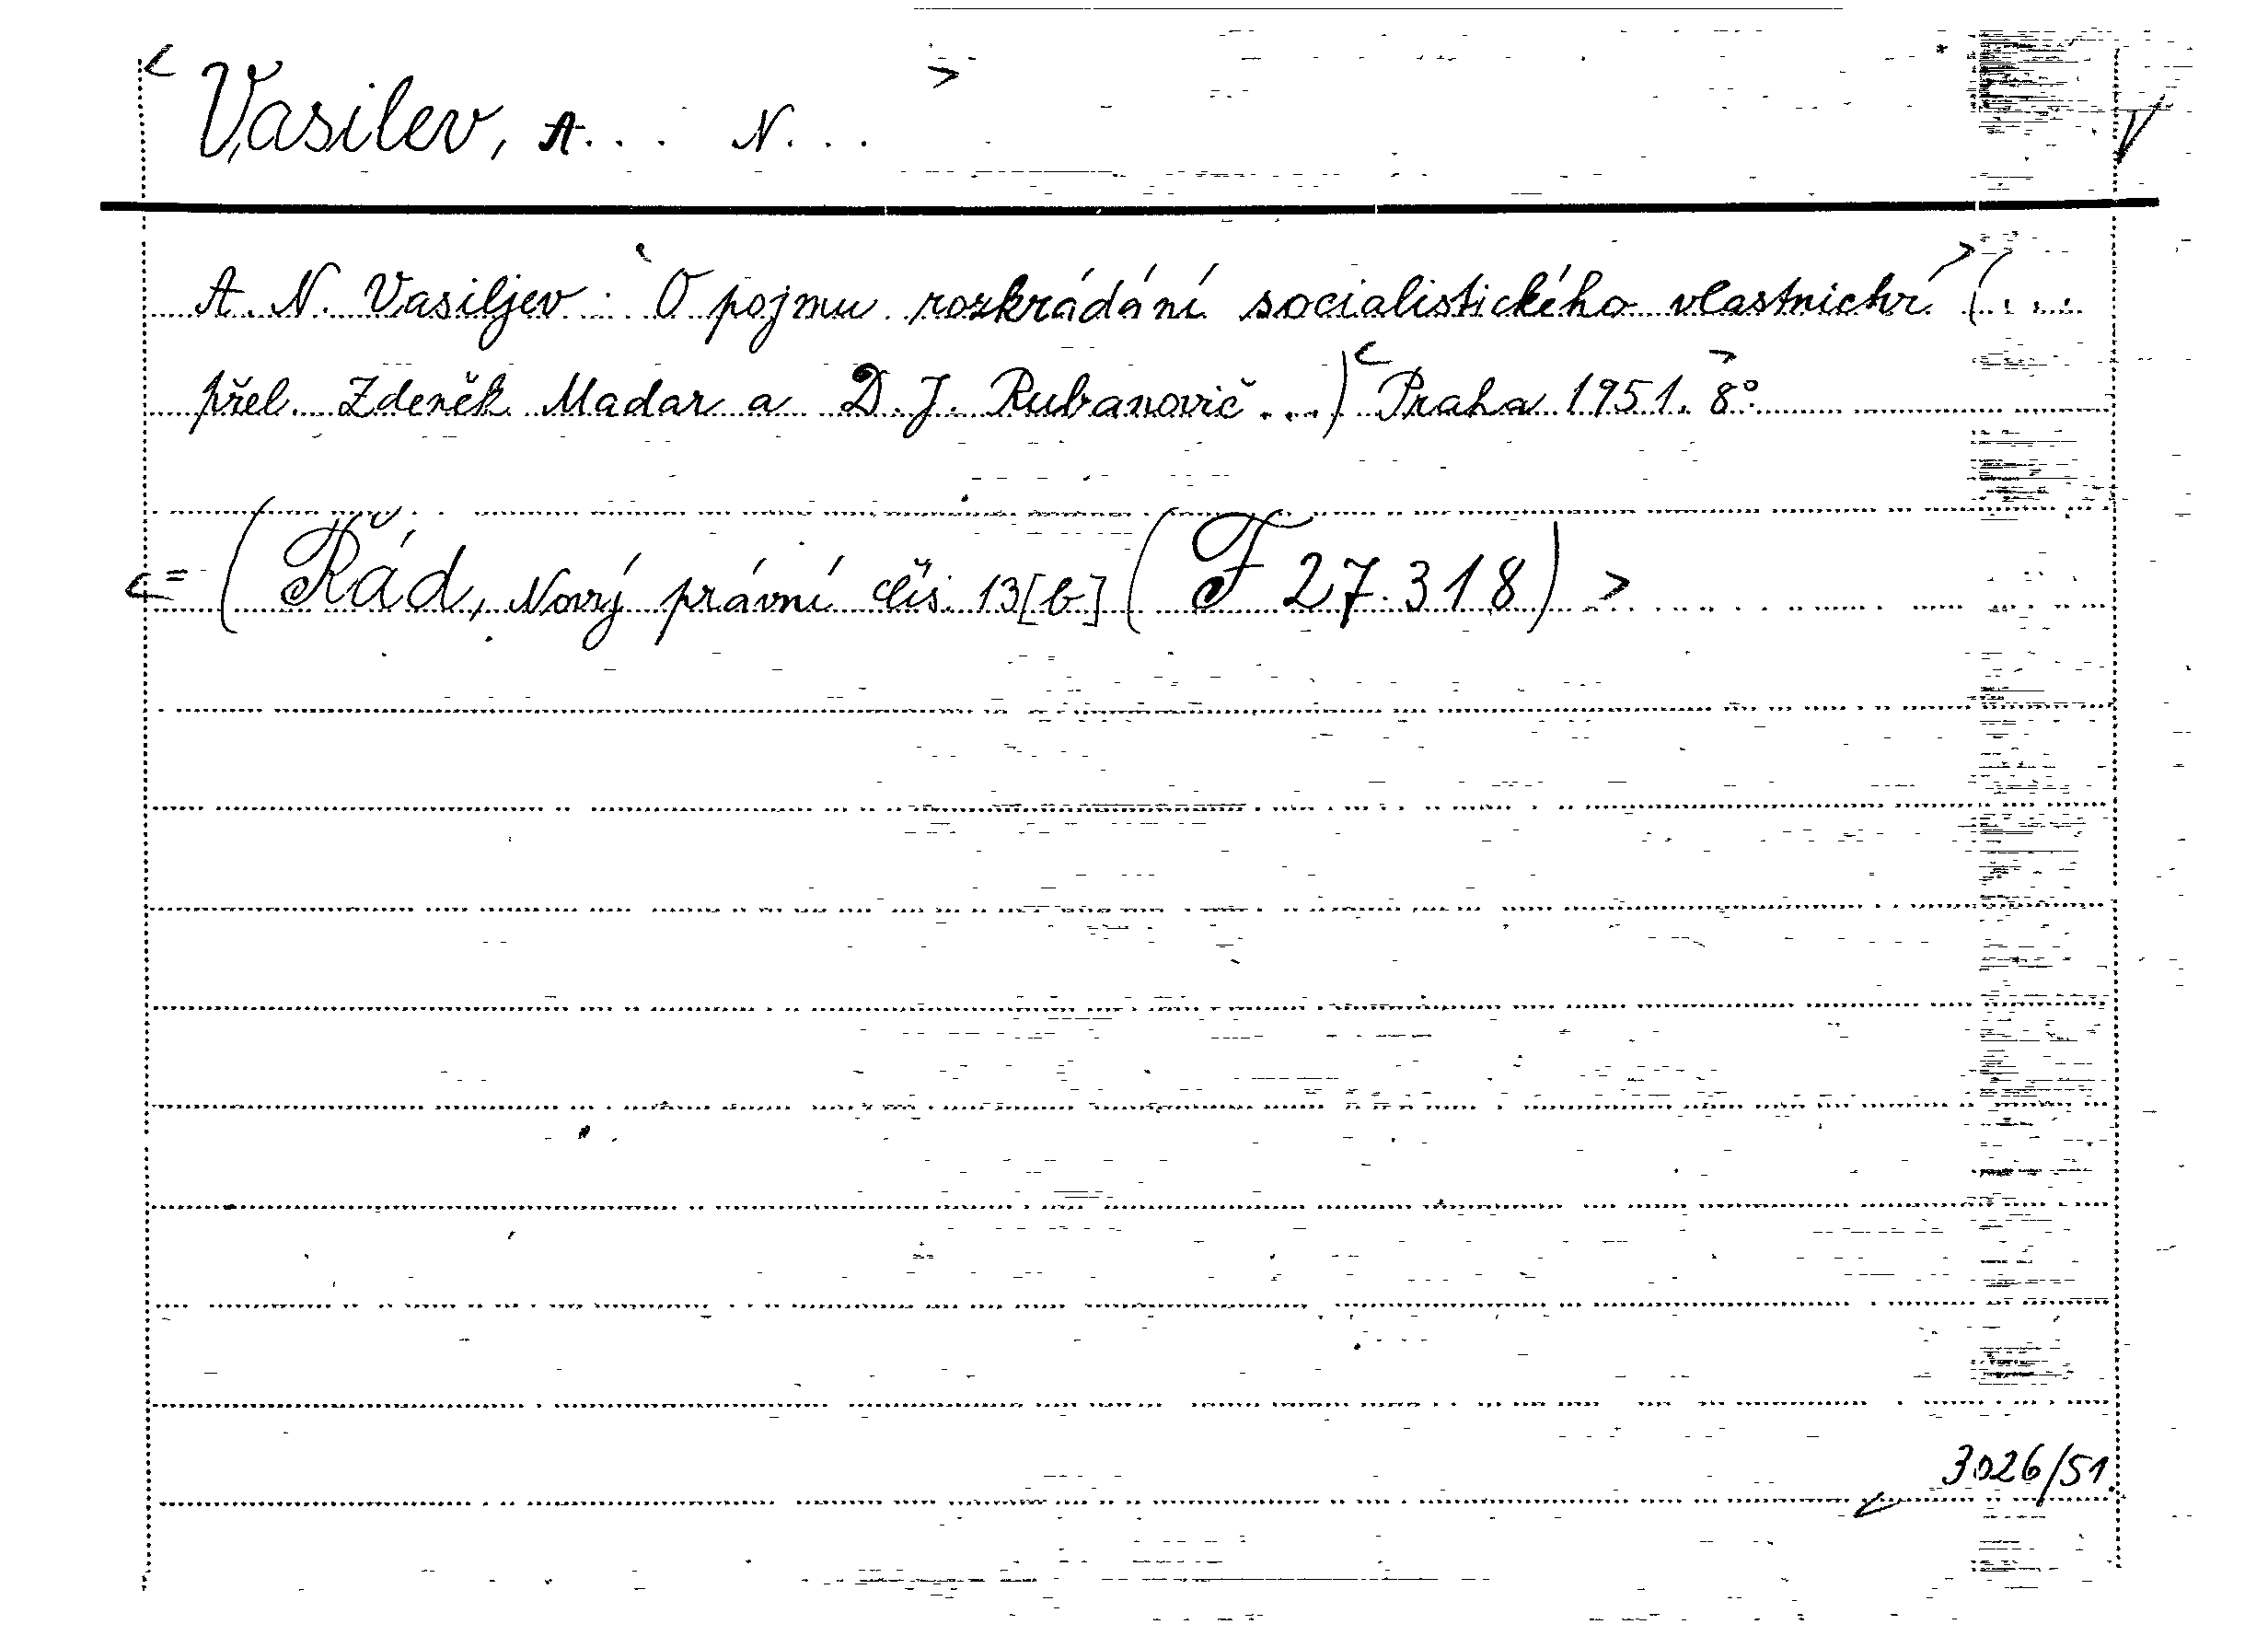 < Vasilev, A... N... >
A. N. Vasiljev: O pojmu rozkrádání socialistického vlastnictví > (...
přel. Zdeněk Madar a D. J. Rubanovič...) < Praha 1951. 8° >
<= (Řád, Nový právní čís. 13[b] (F 27.318) >
3026/51